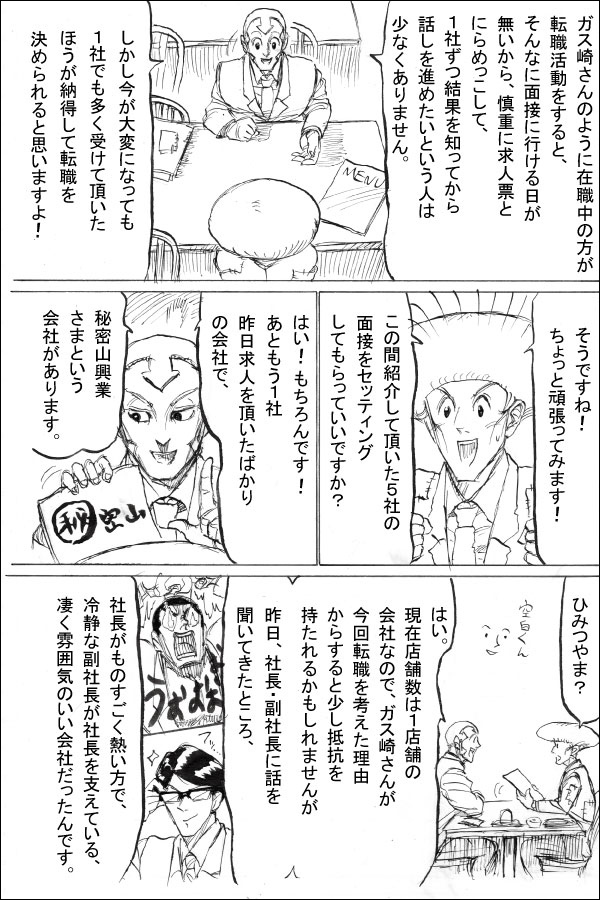 ガス崎さんのように在職中の方が
転職活動をすると、
そんなに面接に行ける日が
無いから、慎重に求人票と
にらめっこして、
1社ずつ結果を知ってから
話しを進めたいという人は
少なくありません。
MENU
しかし今が大変になっても
1社でも多く受けて頂いた
ほうが納得して転職を
決められると思いますよ！
そうですね！
ちょっと頑張ってみます！
この間紹介して頂いた5社の
面接をセッティング
してもらっていいですか？
はい！もちろんです！
あともう1社
昨日求人を頂いたばかり
の会社で、
秘密山興業
さまという
会社があります。
㊙密山
ひみつやま？
空白くん
はい。
現在店舗数は1店舗の
会社なので、ガス崎さんが
今回転職を考えた理由
からすると少し抵抗を
持たれるかもしれませんが
昨日、社長・副社長に話を
聞いてきたところ、
社長がものすごく熱い方で、
冷静な副社長が社長を支えている、
凄く雰囲気のいい会社だったんです。